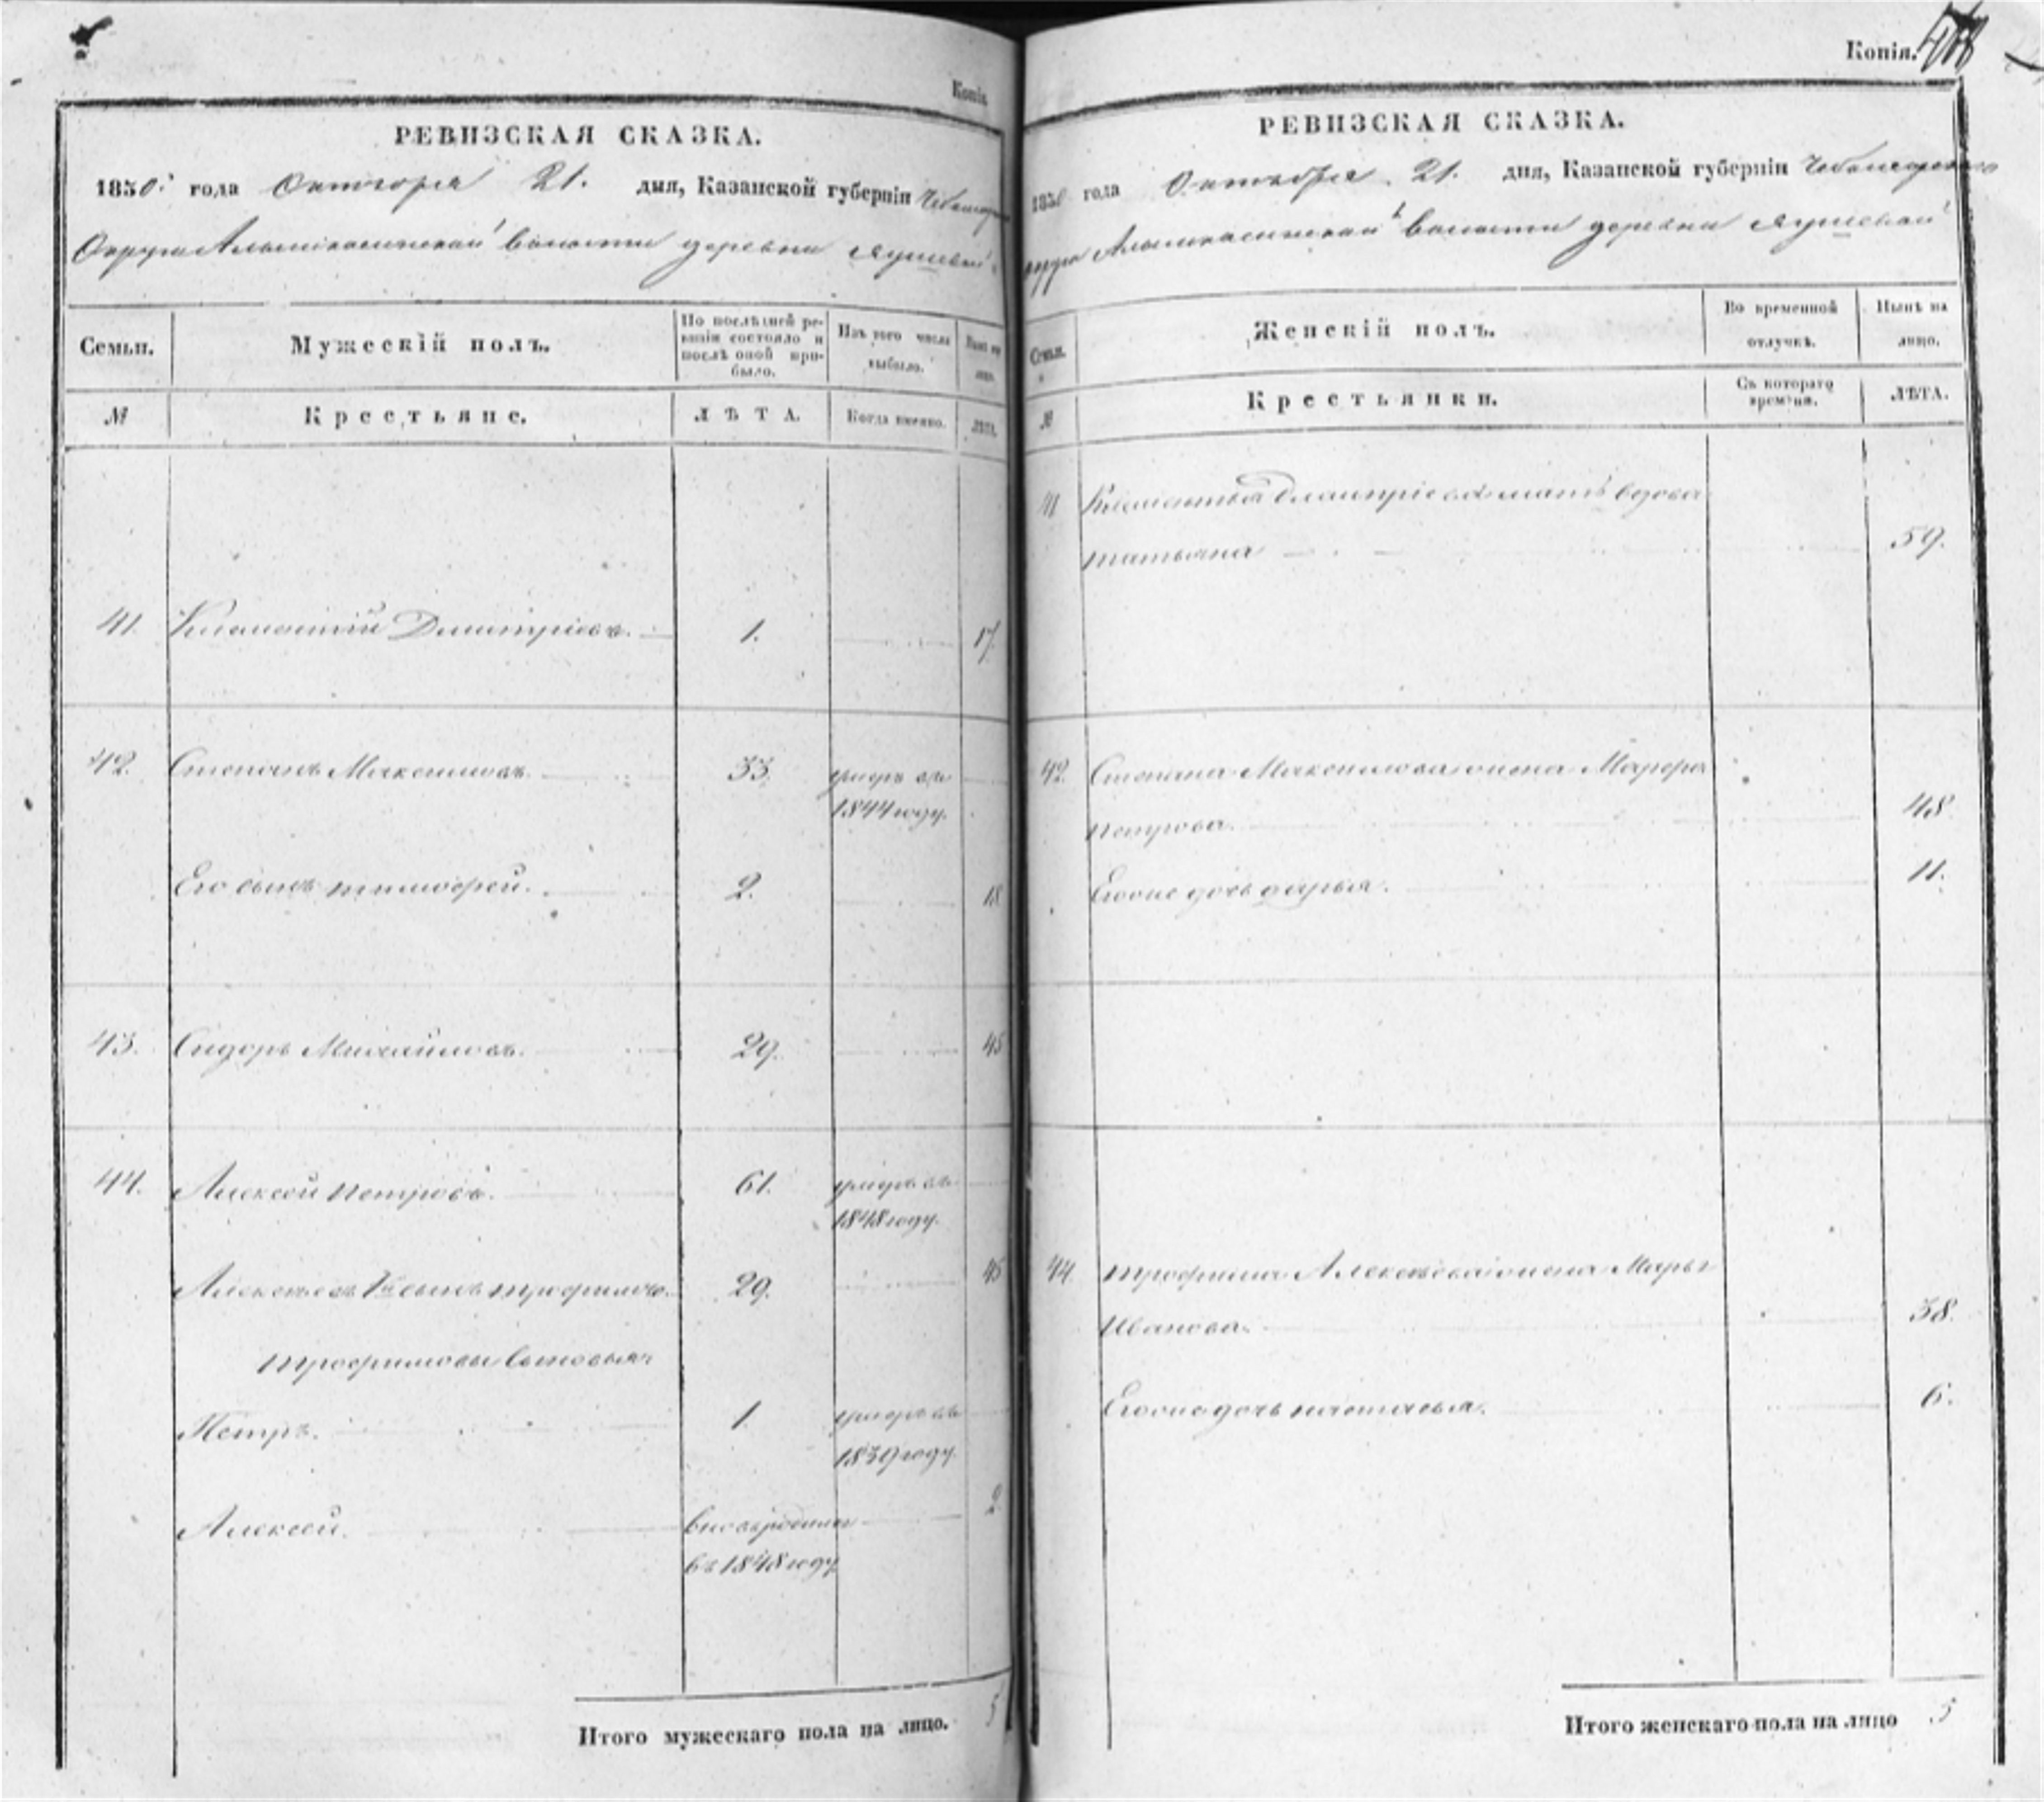 Копія
РЕВИЗСКАЯ СКАЗКА.
1850. года Октября 21. дня, Казанской губерніи
Округи волости деревни Яушевой
Семьи.
Мужескій полъ.
По послѣдней ре-
визіи состояло и
послѣ оной при-
было.
Изъ того числа
выбыло.
№
Крестьяне.
ЛѢТА.
Когда именно.
41. Дмитріевъ. 1. 17.
42. Степанъ Максимовъ. 33. умеръ въ
1844 году.
Его сынъ тимофей. 2. 18
43. Сидоръ Михайловъ. 29. 45
44. Алексей петровъ. 61. умеръ въ
1848 году.
сынъ трофимъ. 29. 45
трофимовы сыновья
Петръ. 1. умеръ въ
1839 году.
Алексей. 2
въ 1848 году
Итого мужескаго пола на лицо. 5
Копія.
РЕВИЗСКАЯ СКАЗКА.
1850 года Октября 21. дня, Казанской губерніи
волости деревни Яушевой
Семьи.
Женскій полъ.
Во временной
отлучкѣ.
Нынѣ на
лицо.
№
Крестьянки.
Съ котораго
времѣни.
ЛѢТА.
41 Дмитріева мать вдова
татьяна 59.
42. Степана Максимова жена Марфа
петрова. 48
Егоже дочь дарья. 11.
44. трофима Алексѣева жена Марья
Иванова. 38.
Егоже дочь настасья. 6.
Итого женскаго пола на лицо 5